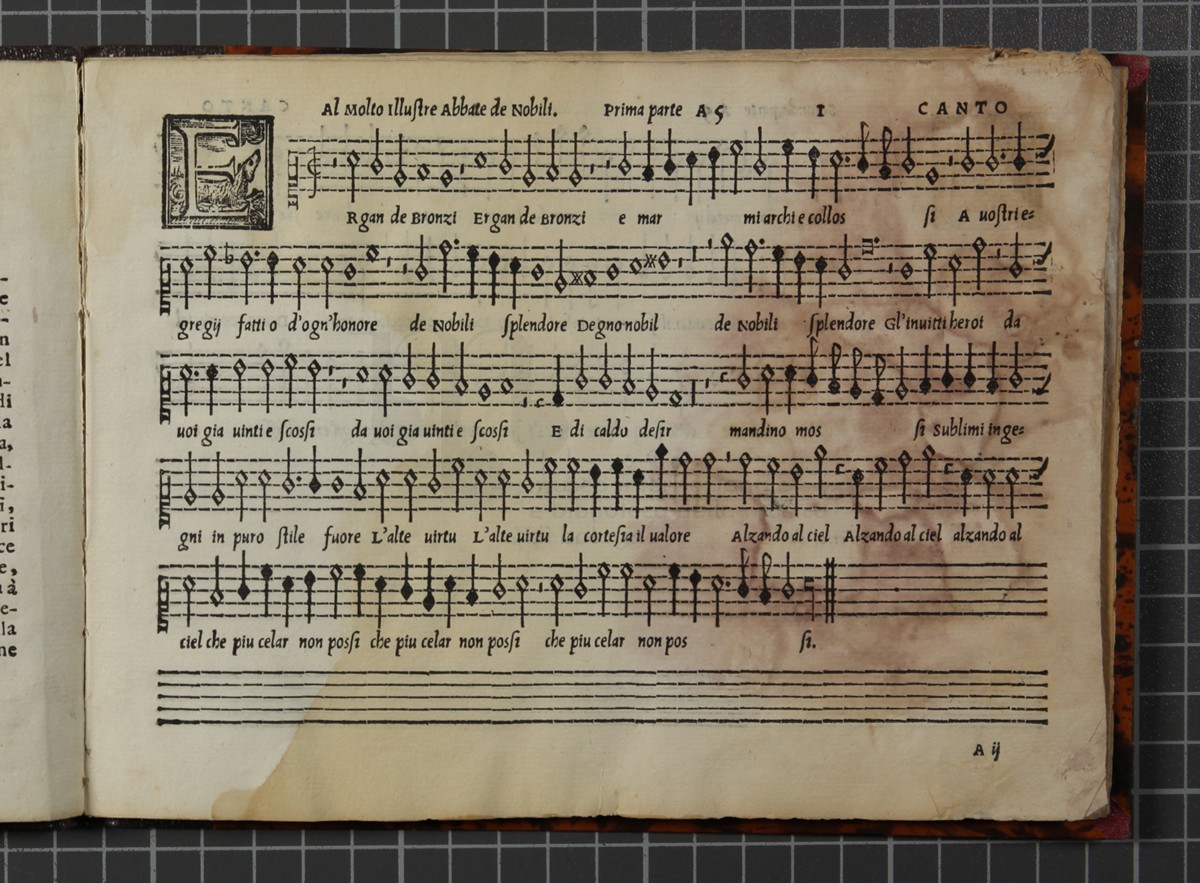 Al Molto Illuſtre Abbate de Nobili. Prima parte A 5 1 CANTO
E Rgan de Bronzi Ergan de Bronzi e mar mi archi e collos ſi A uoſtri e=
gregij fatti o d'ogn'honore de Nobili ſplendore Degno nobil de Nobili ſplendore Gl'inuitti heroi da
uoi gia uinti e ſcoſſi da uoi gia uinti e ſcoſſi E di caldo deſir mandino mos ſi Sublimi inge=
gni in puro ſtile fuore L'alte uirtu L'alte uirtu la corteſia il ualore Alzando al ciel Alzando al ciel alzando al
ciel che piu celar non poſſi che piu celar non poſſi che piu celar non pos ſi.
A ij